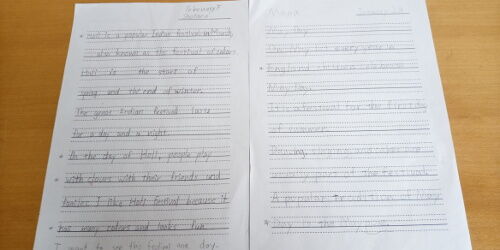 February 7
Holi is a popular Indian festival in March,
also known as the festival of colors
Holi is the start of
spring and the end of winter.
The great Indian festival lasts
for a day and a night.
In the day of Holi, people play
with colours with their friends and
families. I like Holi festival because it
has many colours and looks fun.
I want to see the festival one day.
Maria
May Day
May Day is every year in
England children celebrate
May Day.
It is a festival for the first day
of summer.
Dancing, singing and cakes are
usually part of the festival.
A popular tradition of May
Day is the Maypole